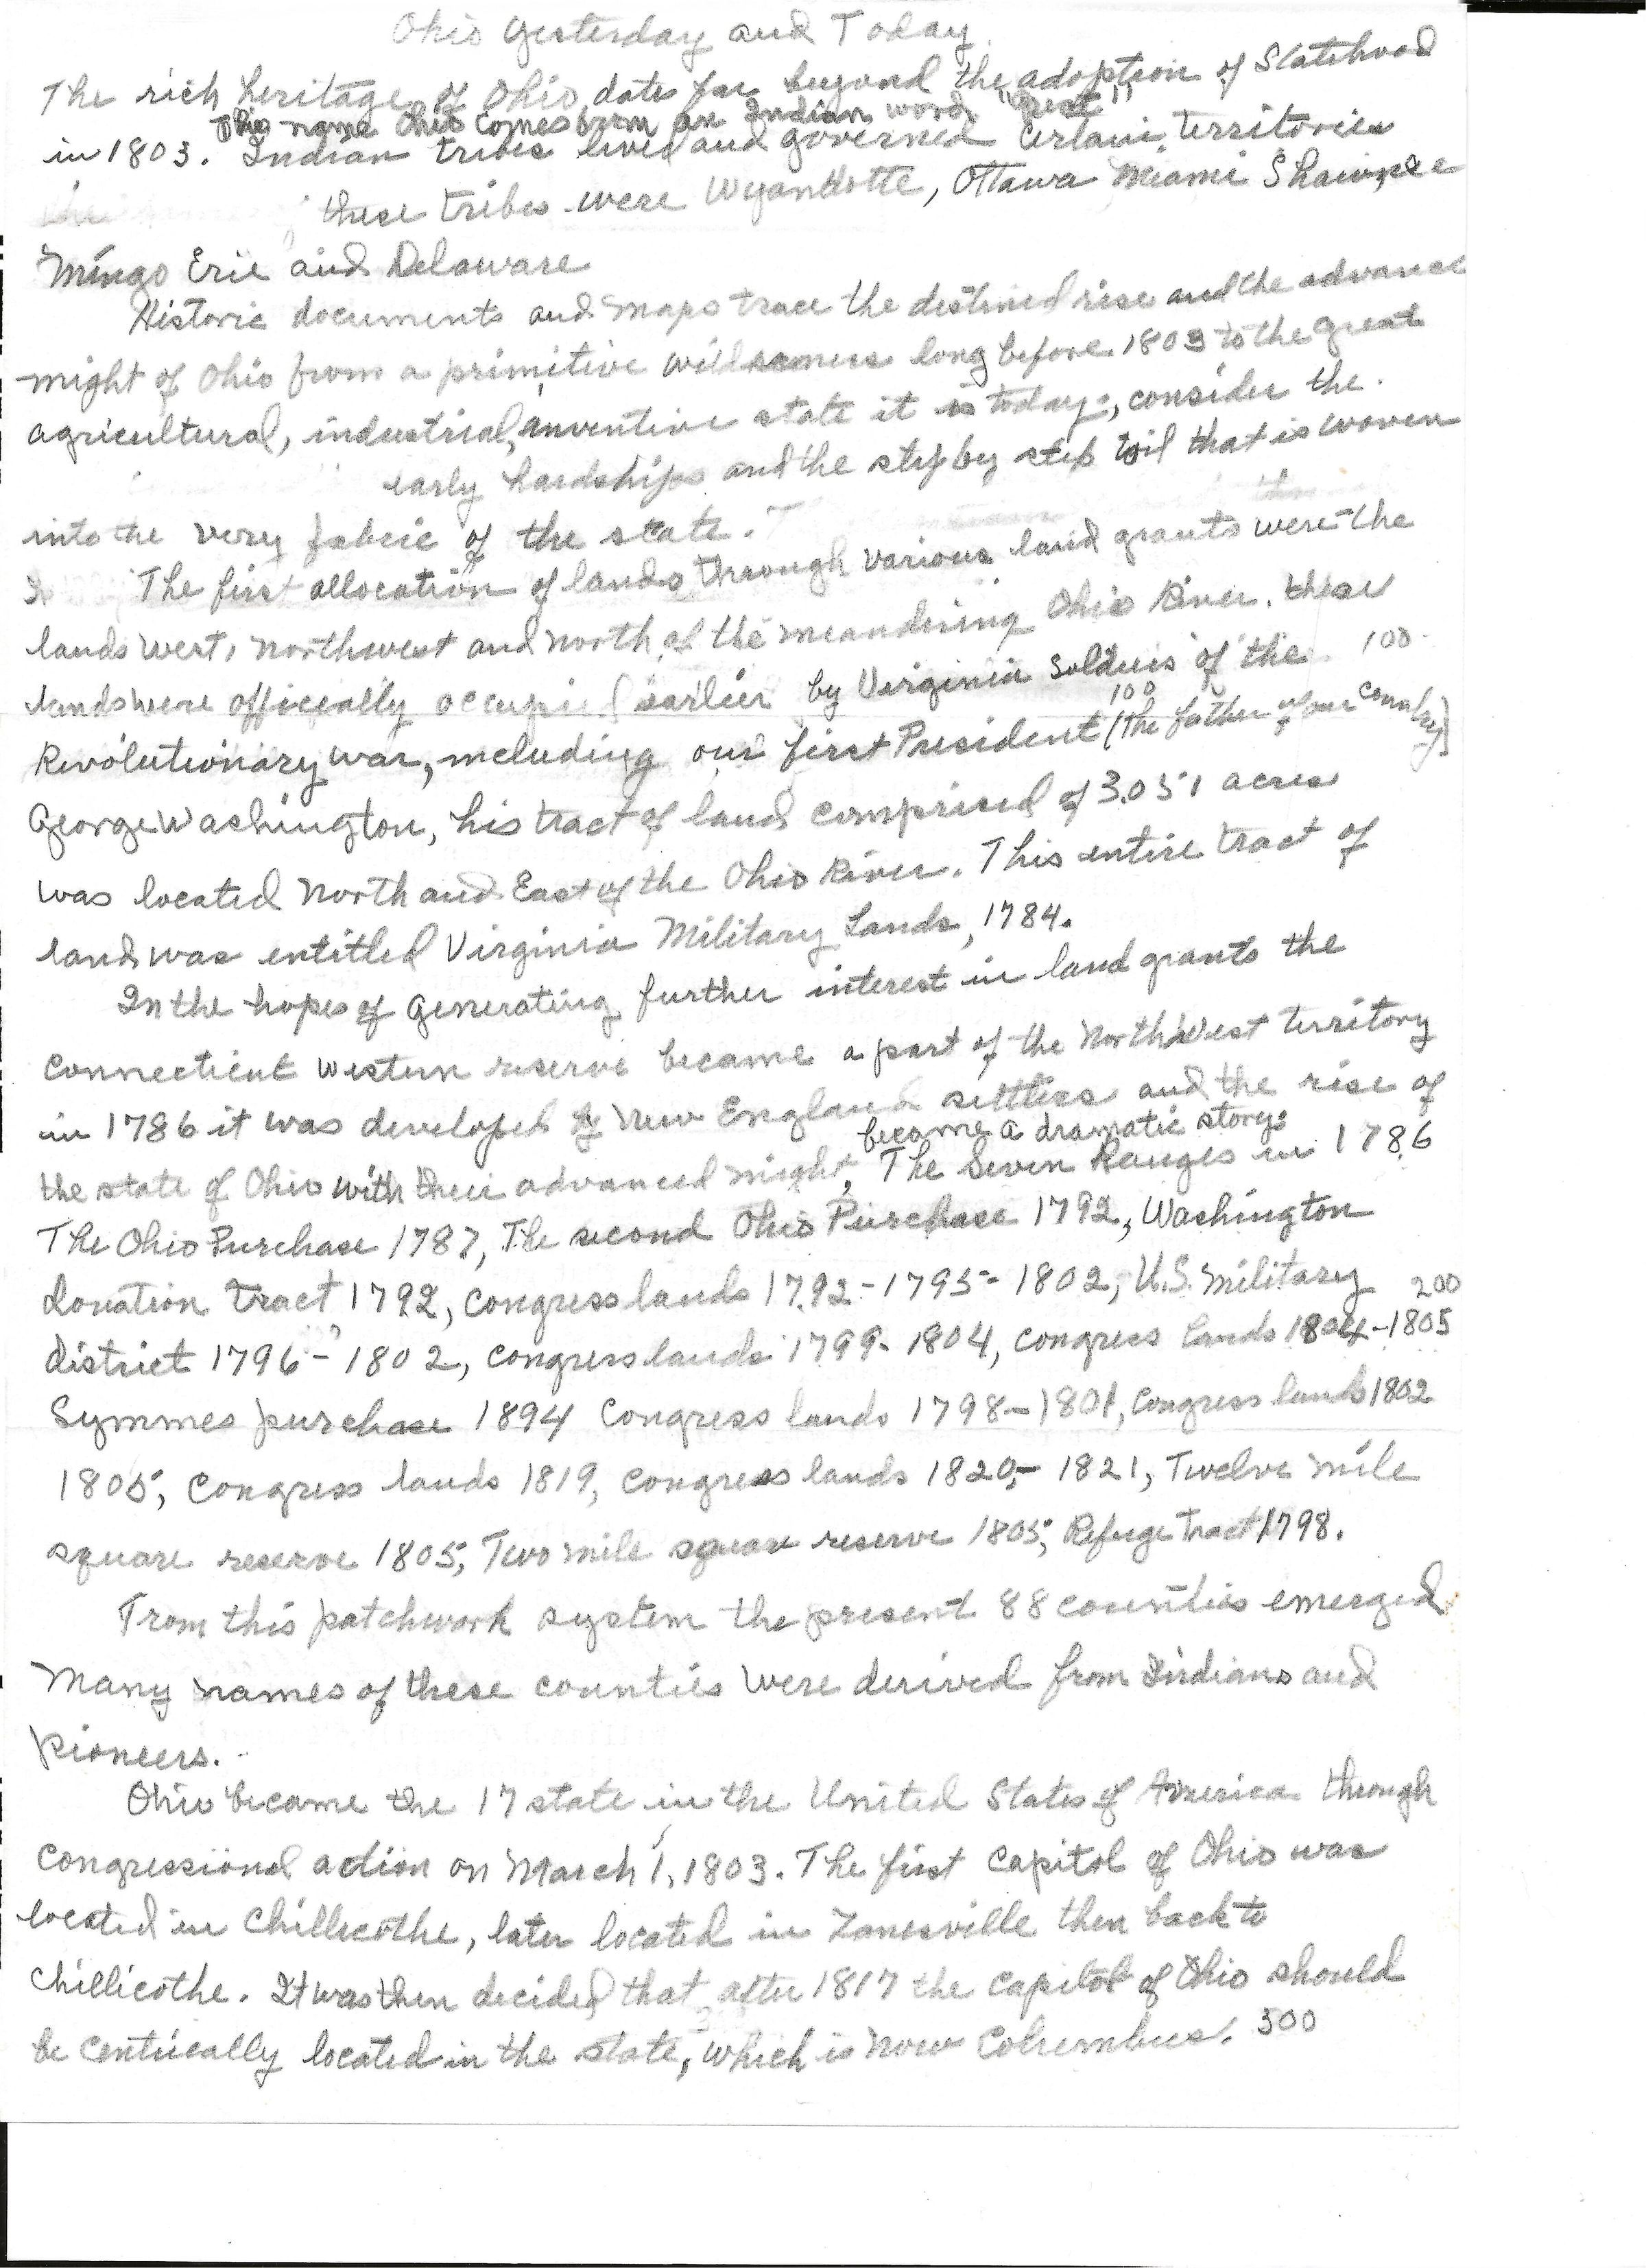 Ohio Yesterday and Today
The rich heritage of Ohio, dates far beyond the adoption of Statehood
The name Ohio comes from an Indian word "Great"
in 1803. Indian tribes lived and governed certain territories
these tribes were Wyandotte, Ottawa Miami Shawnee
Mingo Erie and Delaware
Historic documents and maps trace the destined rise and the advance
might of Ohio from a primitive wilderness long before 1803 to the great
agricultural, industrial, inventive state it is today, consider the
early hardships and the step by step toil that is woven
into the very fabric of the state.
The first allocation of lands through various land grants were the
lands west, northwest and north of the meandering Ohio River. these
lands were officially occupied earlier by Virginia soldiers of the 100
100
Revolutionary war, including our first President (the father of our country)
George Washington, his tract of land comprised of 3.051 acres
was located North and East of the Ohio River. This entire tract of
land was entitled Virginia Military Lands, 1784.
In the hopes of generating further interest in land grants the
Connecticut western reserve became a part of the Northwest territory
in 1786 it was developed by New England settlers and the rise of
became a dramatic story:
the state of Ohio with their advanced might, The Seven Ranges in 1786
The Ohio Purchase 1787, The second Ohio Purchase 1792, Washington
Donation Tract 1792, congress lands 1792-1795-1802, U.S. Military 200
district 1796-1802, congress lands 1799-1804, congress lands 1804-1805
Symmes purchase 1894 Congress lands 1798-1801, Congress lands 1802
1805, Congress lands 1819, congress lands 1820-1821, Twelve mile
square reserve 1805, Two mile square reserve 1805, Refuge Tract 1798.
From this patchwork system the present 88 counties emerged
Many names of these counties were derived from Indians and
pioneers.
Ohio became the 17 state in the United States of America through
congressional action on March 1, 1803. The first capitol of Ohio was
located in Chillicothe, later located in Zanesville then back to
Chillicothe. It was then decided that after 1817 the capitol of Ohio should
be centrically located in the state, which is now Columbus. 300